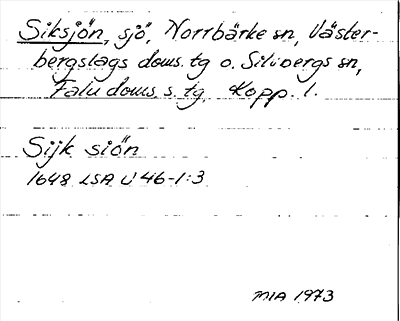 Siksjön, sjö, Norrbärke sn, Väster-
bergslags doms. tg o. Silvbergs sn,
Falu doms. s. tg, Kopp. l.
Sijk siön
1648 LSA U 46-1:3
MIA 1973